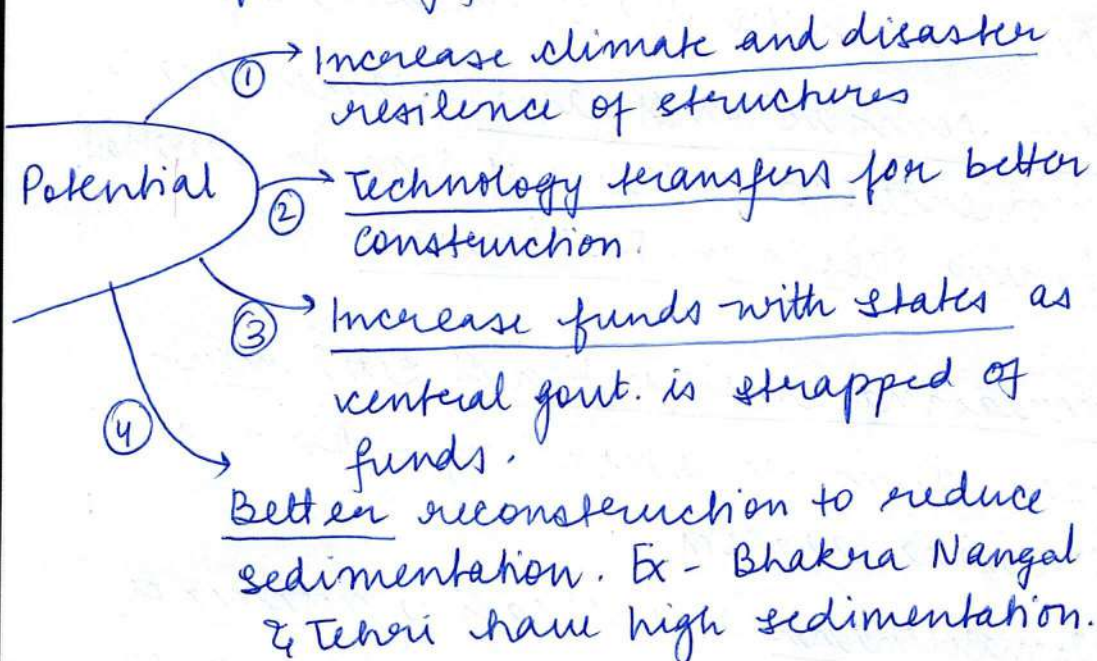 ① Increase climate and disaster
resilence of structures
Potential
② Technology transfers for better
construction.
③ Increase funds with states as
central govt. is strapped of
funds.
④
Better reconstruction to reduce
sedimentation. Ex - Bhakra Nangal
& Tehri have high sedimentation.